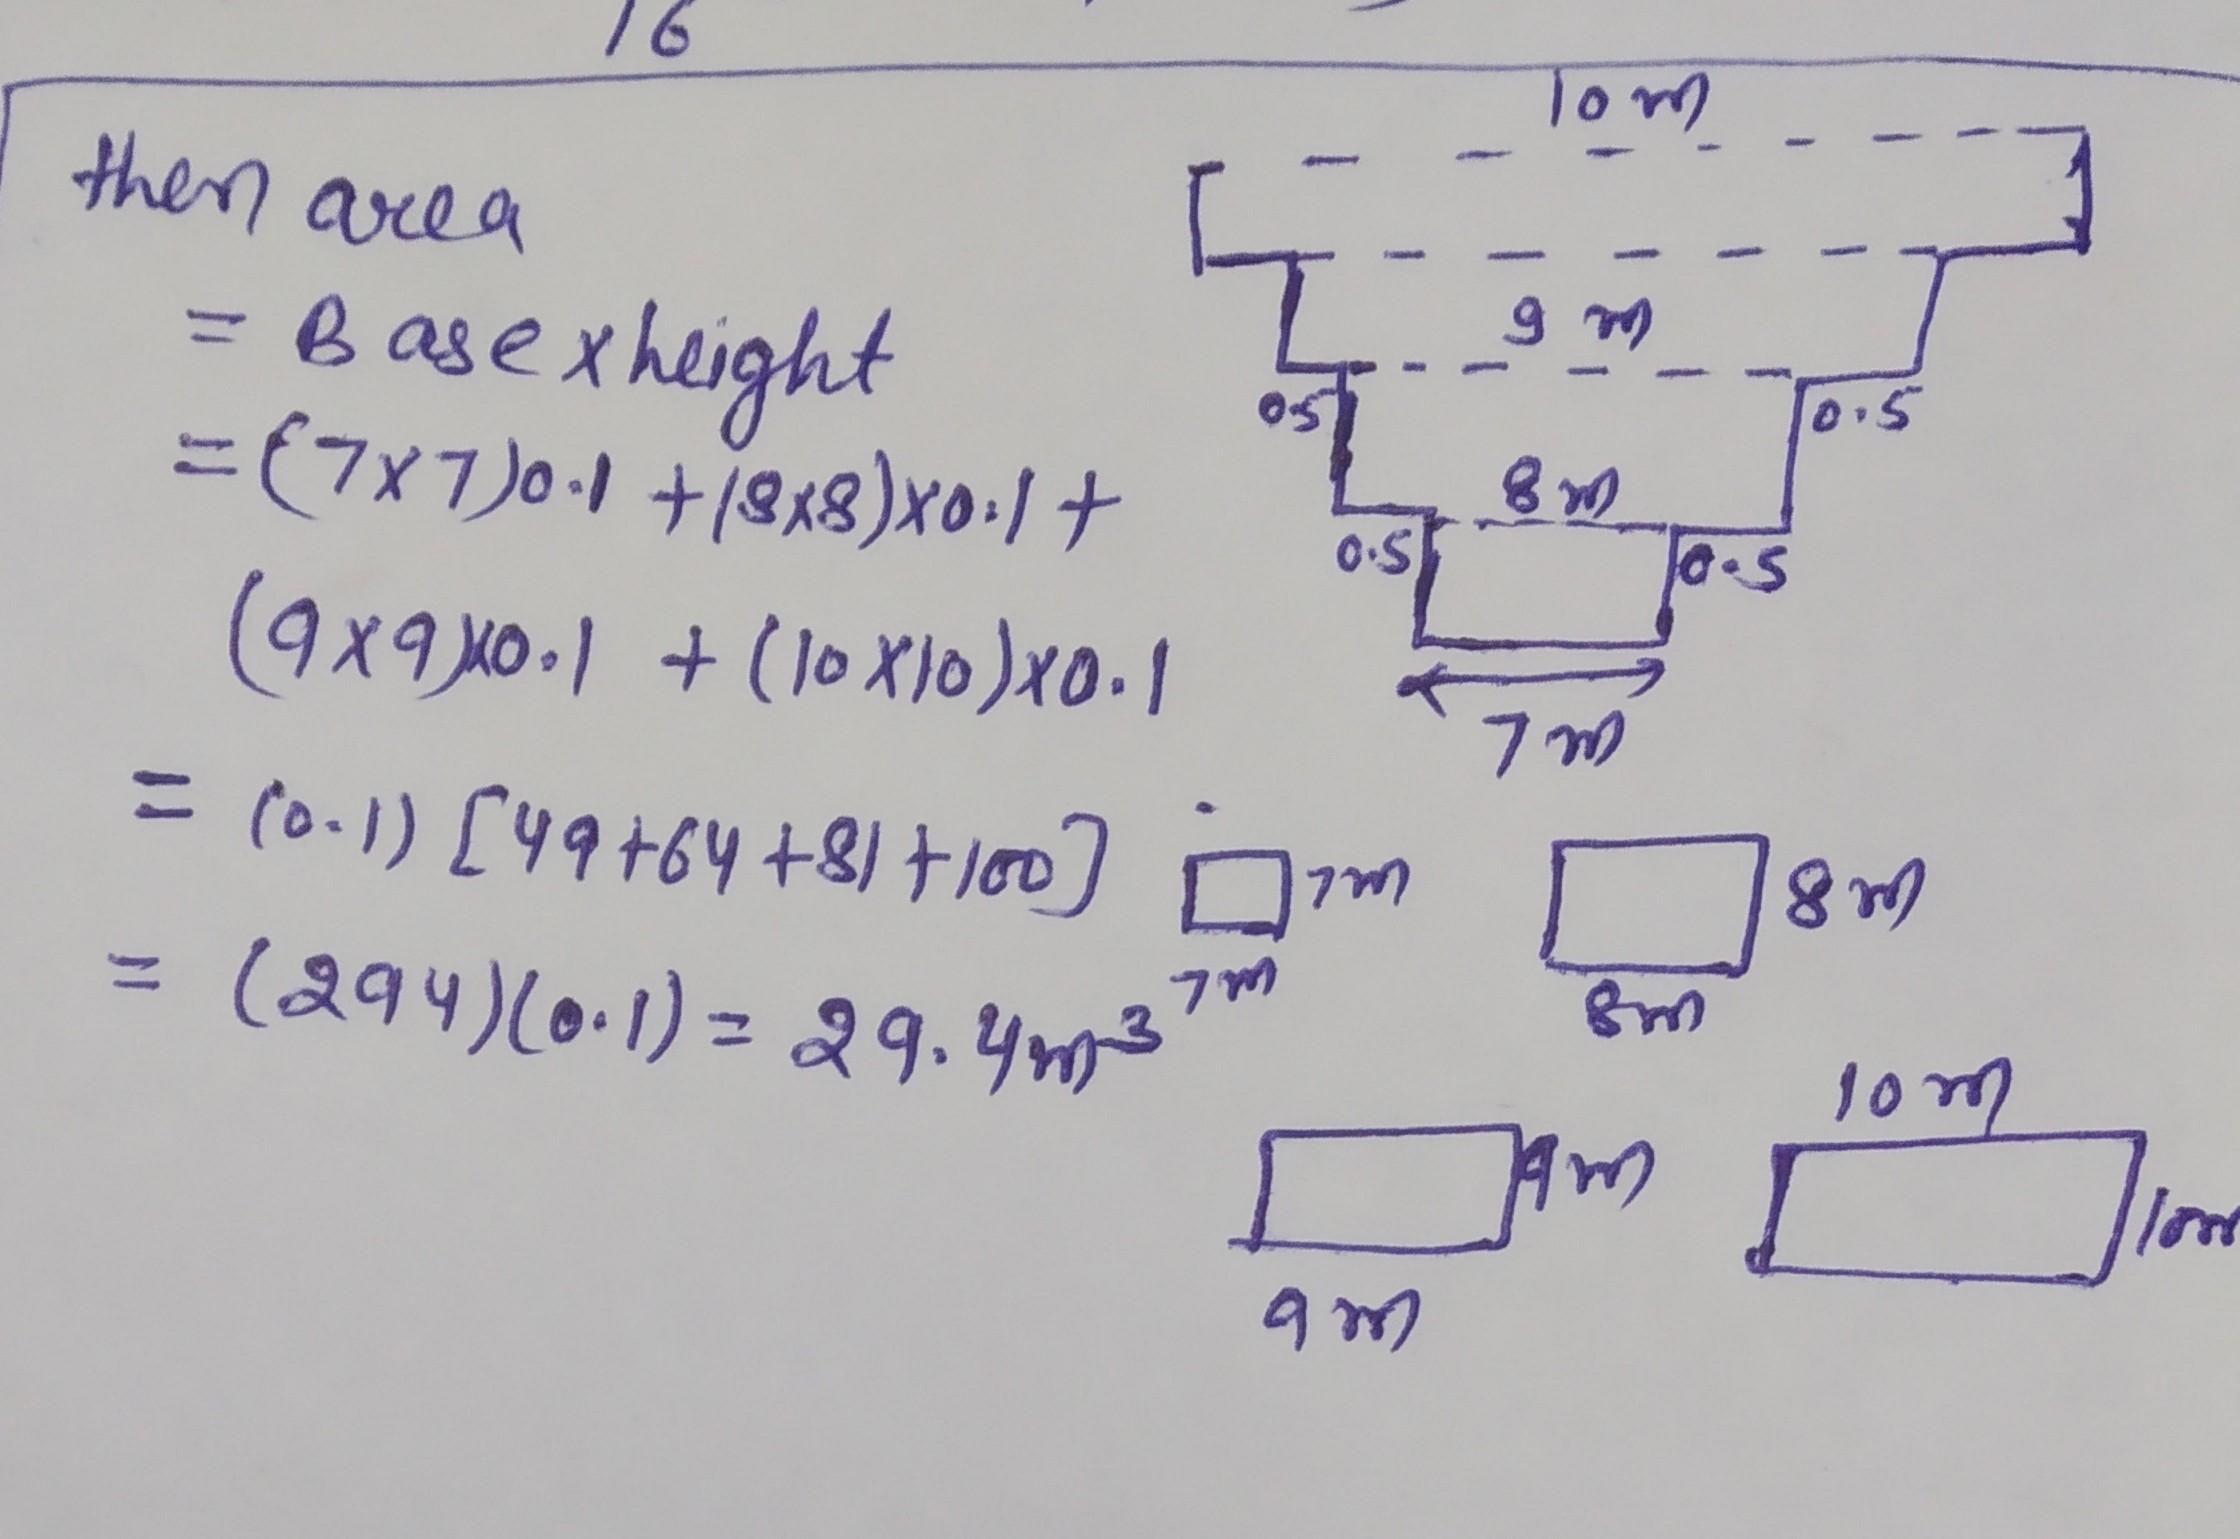 16
then area
= Base x height
= (7x7)0.1 + (8x8)x0.1 +
(9x9)x0.1 + (10x10)x0.1
= (0.1) [49+64+81+100]
= (294)(0.1) = 29.4m³
10m
9m
0.5 0.5
8m
0.5 0.5
7m
7m
7m
8m
8m
9m
9m
10m
10m